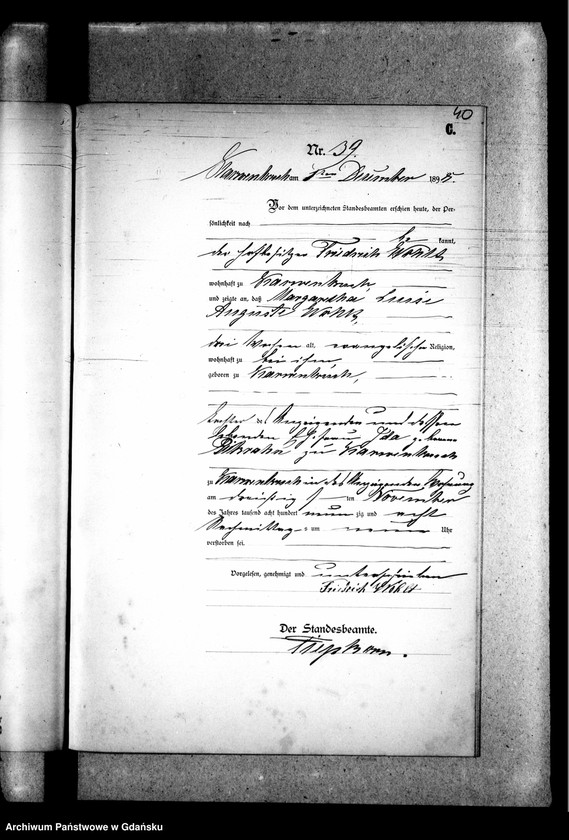 40
C.
Nr. 39.
Karwenbruch am 1ten Dezember 1898.
Vor dem unterzeichneten Standesbeamten erschien heute, der Per-
sönlichkeit nach
be kannt,
der Hofbesitzer Friedrich Wohlt
wohnhaft zu Karwenbruch,
und zeigte an, daß Margaretha Luise
Auguste Wohlt,
drei Wochen alt, evangelischer Religion,
wohnhaft zu bei ihm
geboren zu Karwenbruch,
Tochter des Anzeigenden und dessen
Ehefrau Ida geborene
zu Karwenbruch
zu Karwenbruch in des Anzeigenden Wohnung
am dreißig ten November
des Jahres tausend acht hundert neun zig und acht
Nachmittags um neun Uhr
verstorben sei.
Vorgelesen, genehmigt und unterschrieben
Friedrich Wohlt
Der Standesbeamte.
Archiwum Państwowe w Gdańsku